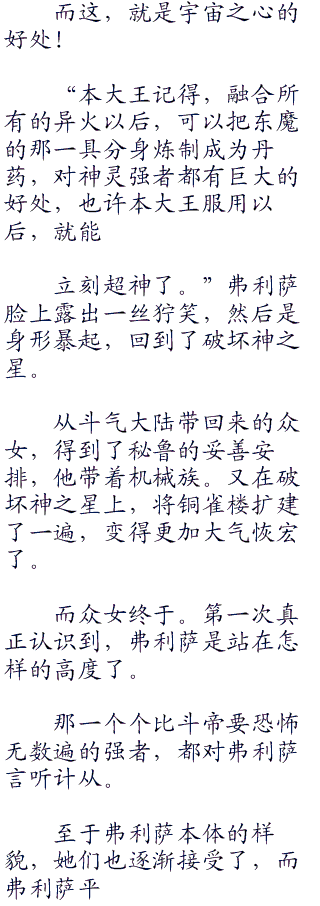 而这，就是宇宙之心的
好处！
“本大王记得，融合所
有的异火以后，可以把东魔
的那一具分身炼制成为丹
药，对神灵强者都有巨大的
好处，也许本大王服用以
后，就能
立刻超神了。”弗利萨
脸上露出一丝狞笑，然后是
身形暴起，回到了破坏神之
星。
从斗气大陆带回来的众
女，得到了秘鲁的妥善安
排，他带着机械族。又在破
坏神之星上，将铜雀楼扩建
了一遍，变得更加大气恢宏
了。
而众女终于。第一次真
正认识到，弗利萨是站在怎
样的高度了。
那一个个比斗帝要恐怖
无数遍的强者，都对弗利萨
言听计从。
至于弗利萨本体的样
貌，她们也逐渐接受了，而
弗利萨平